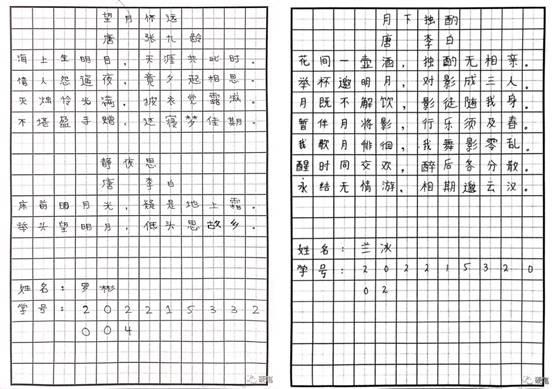 望月怀远
唐 张九龄
海上生明月，天涯共此时。
情人怨遥夜，竟夕起相思。
灭烛怜光满，披衣觉露滋。
不堪盈手赠，还寝梦佳期。
静夜思
唐 李白
床前明月光，疑是地上霜。
举头望明月，低头思故乡。
姓名：罗彬
学号：202215332
004
月下独酌
唐 李白
花间一壶酒，独酌无相亲。
举杯邀明月，对影成三人。
月既不解饮，影徒随我身。
暂伴月将影，行乐须及春。
我歌月徘徊，我舞影零乱。
醒时同交欢，醉后各分散。
永结无情游，相期邈云汉。
姓名：兰冰
学号：202215320
02